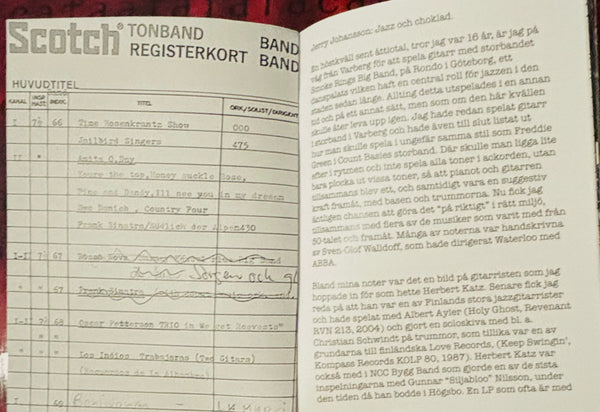 Scotch® TONBAND
REGISTERKORT
BAND
BAND
HUVUDTITEL
KANAL
INSP.
HAST.
INDEX.
TITEL
ORK/SOLIST/DIRIGENT
I 7½ 66 Time Rosenkrantz Show 000
" " Jailbird Singers 475
II " Anita O,Day
Youre the top,Honey suckle Rose,
Fine and Dandy,Ill see you in my dream
Een Dunich , Country Four
Frank Sinatra/Südlich der Alpen430
I-II 7½ 67 Bossa Nova
och
" " 67 Frank Sinatra
I-II 7½ 68 Oscar Petterson TRIO in We get Reovests"
" " Los Indios Trabajaros (Ted Gitars)
I 69
Jerry Johansson: Jazz och choklad.
En höstkväll sent åttiotal, tror jag var 16 år, är jag på
väg från Varberg för att spela gitarr med storbandet
Smoke Rings Big Band, på Rondo i Göteborg, ett
danspalats vilken haft en central roll för jazzen i den
staden sedan länge. Allting detta utspelades i en annan
tid och på ett annat sätt, men som om den här kvällen
skulle åter leva upp igen. Jag hade redan spelat gitarr
i storband i Varberg och hade även till slut listat ut
hur man skulle spela i ungefär samma stil som Freddie
Green i Count Basies storband. Där skulle man ligga lite
efter i rytmen och inte spela alla toner i ackorden, utan
bara plocka ut vissa toner, så att pianot och gitarren
tillsammans blev ett, och samtidigt vara en suggestiv
kraft framåt, med basen och trummorna. Nu fick jag
äntligen chansen att göra det "på riktigt" i rätt miljö,
tillsammans med flera av de musiker som varit med från
50-talet och framåt. Många av noterna var handskrivna
av Sven-Olof Walldoff, som hade dirigerat Waterloo med
ABBA.
Bland mina noter var det en bild på gitarristen som jag
hoppade in för som hette Herbert Katz. Senare fick jag
reda på att han var en av Finlands stora jazzgitarrister
och hade spelat med Albert Ayler (Holy Ghost, Revenant
RVN 213, 2004) och gjort en soloskiva med bl. a.
Christian Schwindt på trummor, som tillika var en av
grundarna till finländska Love Records, (Keep Swingin',
Kompass Records KOLP 80, 1987). Herbert Katz var
också med i NCC Bygg Band som gjorde en av de sista
inspelningarna med Gunnar "Siljabloo" Nilsson, under
den tiden då han bodde i Högsbo. En LP som ofta är med